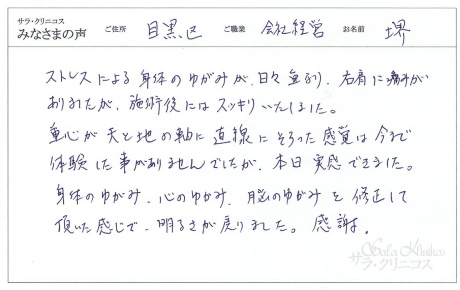 サラ・クリニコス
みなさまの声 ご住所 目黒区 ご職業 会社経営 お名前 堺
ストレスによる身体のゆがみが、日々重なり、右肩に痛みが
ありましたが、施術後にはスッキリいたしました。
重心が天と地の軸に直線にそろった感覚は今まで
体験した事がありませんでしたが、本日実感できました。
身体のゆがみ、心のゆがみ、脳のゆがみを修正して
頂いた感じで、明るさが戻りました。感謝。
Sala Klinikos
サラ・クリニコス